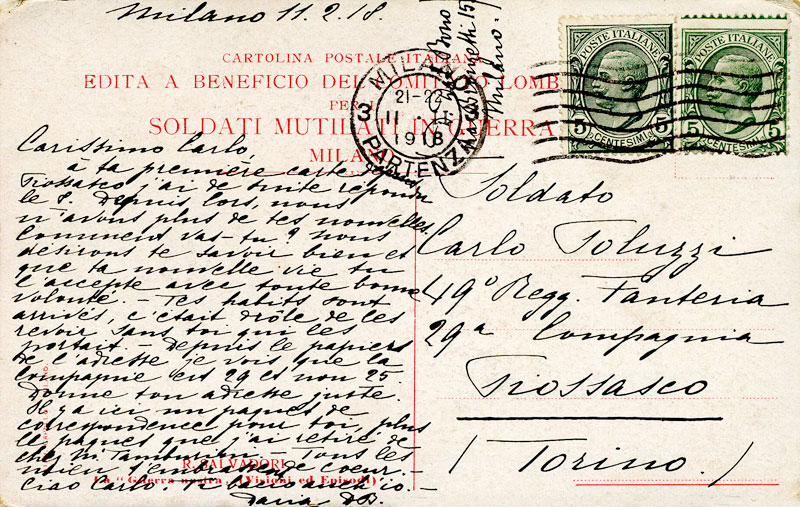 Milano 11.2.18.
CARTOLINA POSTALE ITALIANA
EDITA A BENEFICIO DEL COMITATO LOMB
PER I
SOLDATI MUTILATI IN GUERRA
MILANO
MILANO
21-22
3 11 . II 3
1918
PARTENZA
15
Milano.
POSTE ITALIANE
5 CENTESIMI 5
POSTE ITALIANE
5 CENTESIMI 5
Carissimo Carlo,
à ta première carte
Piossasco j'ai de suite répondu
le 8. Depuis lors, nous
n'avons plus de tes nouvelles.
Comment vas-tu? Nous
désirons te savoir bien et
que ta nouvelle vie tu
l'accepte avec toute bonne
volonté. - Tes habits sont
arrivés, c'était drôle de les
revoir sans toi qui les
portait. - Depuis le papiers
de l'adresse je vois que la
Compagnie est 29 et non 25.
Donne ton adresse juste.
Il y a ici un paquet de
correspondence pour toi, plus
le paquet que j'ai retiré de
chez M. Tamburini. - Tous les
mien t'embrassent de coeur. -
Ciao Carlo. Ti bacio anch'io. -
Daria D.B.
R. SALVADORI
La "Guerra nostra" (Visioni ed Episodi)
Soldato
Carlo Toluzzi
49° Regg. Fanteria
29a Compagnia
Piossasco
(Torino.)